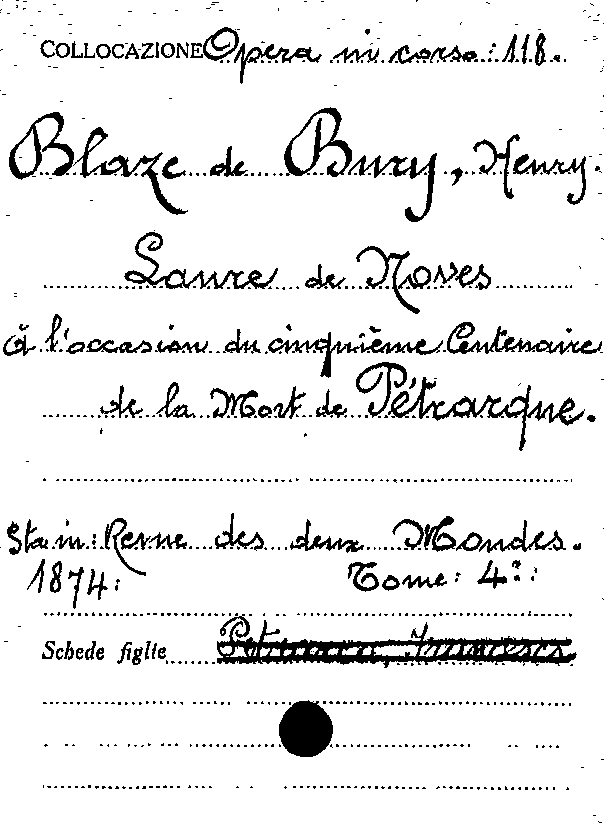 COLLOCAZIONE Opera in corso: 118.
Blaze de Bury, Henry.
Laure de Noves
à l'occasion du cinquième Centenaire
de la Mort de Pétrarque.
Sta in: Revue des deux Mondes.
1874: Tome: 4º:
Schede figlie Petrarca, Francesco